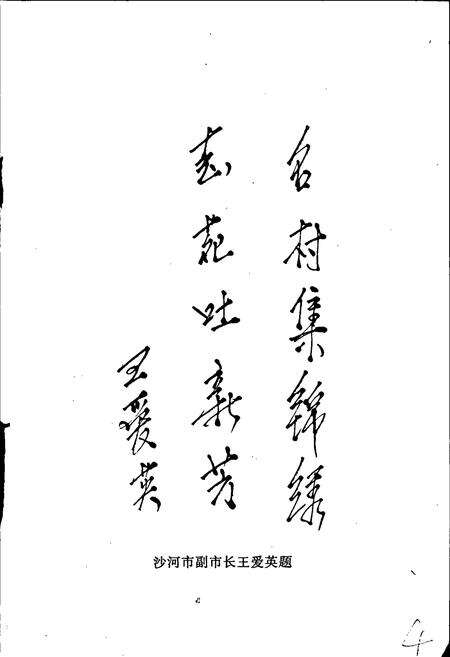 名村集锦绣
志苑吐新芳
王爱英
沙河市副市长王爱英题
4